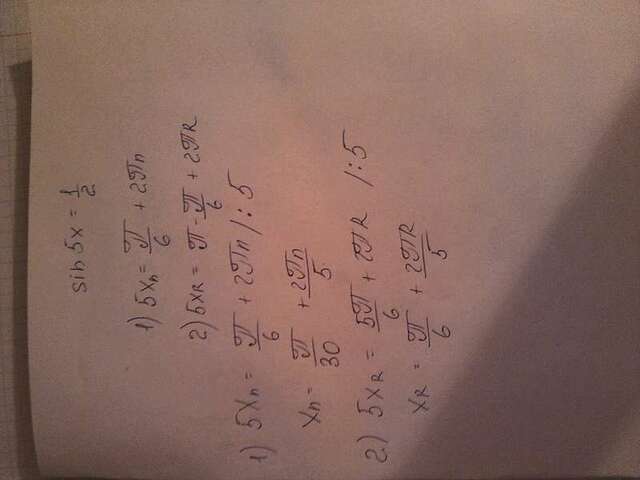 sin 5x = 1/2
1) 5xₙ = π/6 + 2πn
2) 5xₖ = π - π/6 + 2πk
1) 5xₙ = π/6 + 2πn /:5
xₙ = π/30 + 2πn/5
2) 5xₖ = 5π/6 + 2πk /:5
xₖ = π/6 + 2πk/5